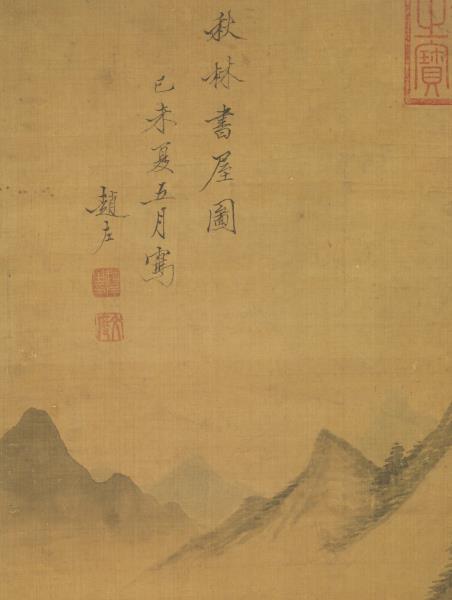 秋林書屋圖
己未夏五月寫
趙左
之寶